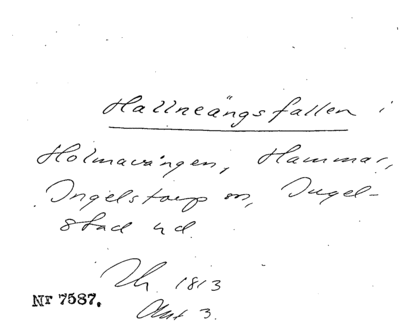 Hallneängsfallen i
Holmavången, Hammar,
Ingelstorp sn, Ingel-
stad hd.
Th. 1813
Akt 3.
Nr 7587.